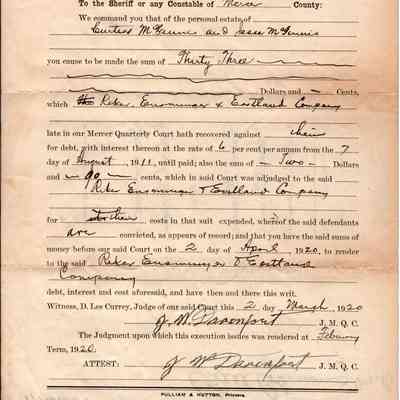 To the Sheriff or any Constable of Mercer County:
We command you that of the personal estate of
Curtess McGinnis and Jesse McGinnis
you cause to be made the sum of Thirty Three
Dollars and - Cents,
which Riker, Ensminger & Eastland Company
late in our Mercer Quarterly Court hath recovered against them
for debt, with interest thereon at the rate of 6 per cent per annum from the 7
day of August, 1911, until paid; also the sum of - Two - Dollars
and - 90 - cents, which in said Court was adjudged to the said
Riker Ensminger & Eastland Company
for their costs in that suit expended, where the said defendants
are convicted, as appears of record; and that you have the said sums of
money before our said Court on the 2 day of April 1920, to render
to the said Riker Ensminger & Eastland
Company
debt, interest and costs aforesaid, and have then and there this writ.
Witness, D. Les Currey, Judge of our said Court this 2 day March, 1920
J. W. Davenport J. M. Q. C.
The Judgment upon which this execution issues was rendered at February
Term, 1920.
ATTEST: J W Davenport J. M. Q. C.
PULLIAM & HUTTON, Printers